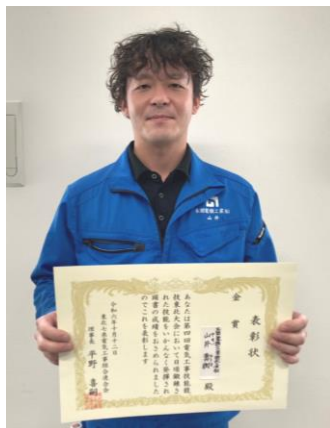 表彰状
金賞
山井
殿
あなたは第四回電気工事技能競
技東北大会において日頃鍛練さ
れた技能をいかんなく発揮され
頭書の成績をおさめられました
のでこれを表彰します
令和六年十月十二日
東北七県電気工事組合連合会
理事長 平野 喜嗣